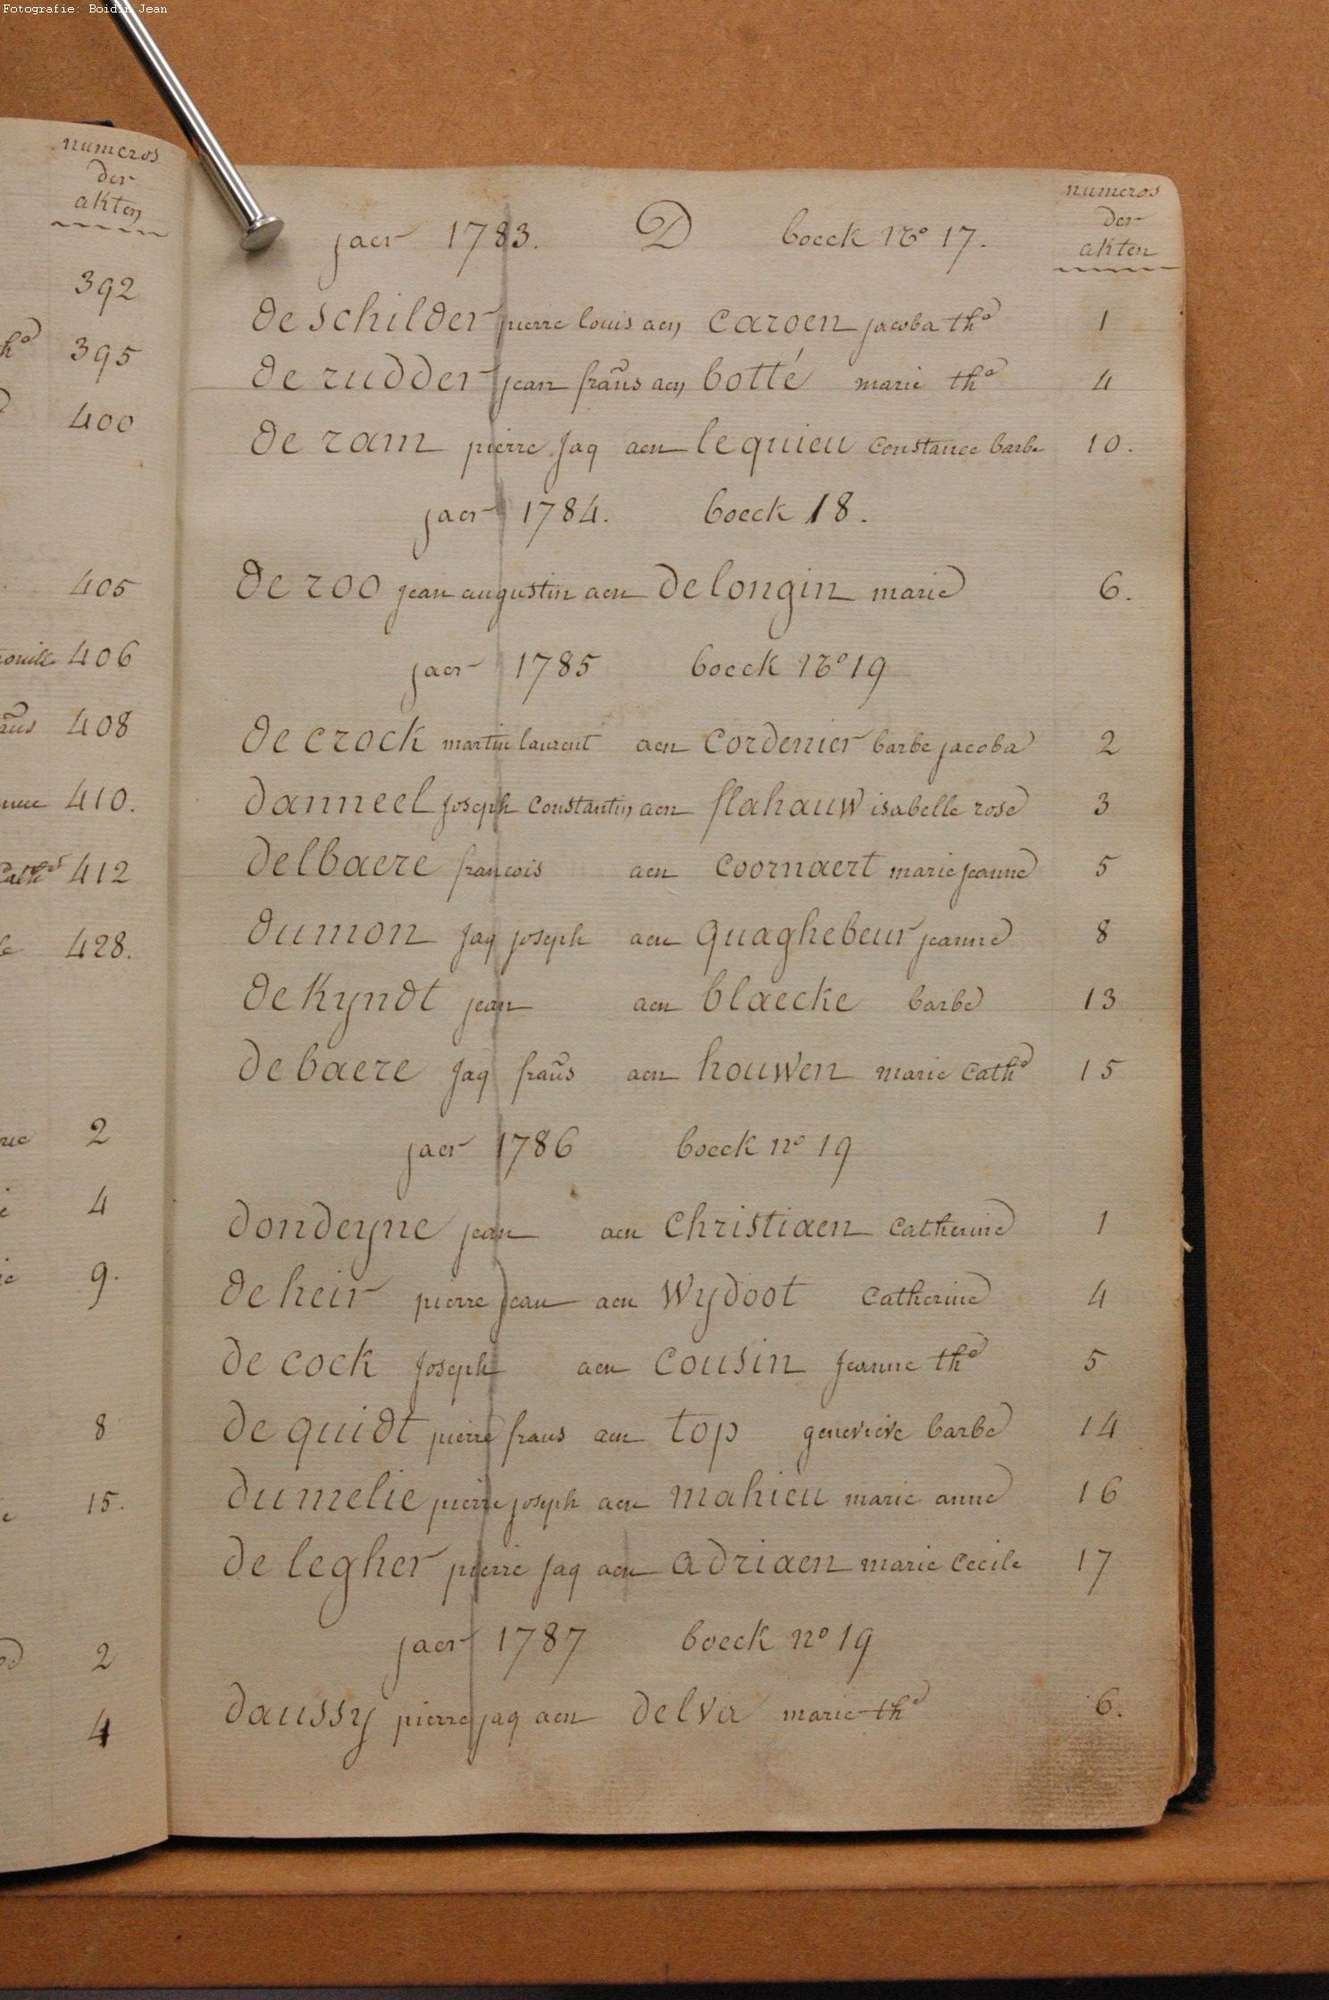 Fotografie: Boidin Jean
numeros
der
akten
392
395
400
405
406
408
410.
412
428.
2
4
9.
8
15.
2
4
numeros
der
akten
jaer 1783. D boeck No 17.
de schilder pierre louis aen caroen jacoba tha 1
de rudder jean frans aen botté marie tha 4
de ram pierre jaq aen lequieu constance barbe 10.
jaer 1784. boeck 18.
de roo jean augustin aen de longin marie 6.
jaer 1785 boeck No 19
de crock martin laurent aen cordenier barbe jacoba 2
danneel joseph constantin aen flahauw isabelle rose 3
delbaere francois aen coornaert marie jeanne 5
dumon jaq joseph aen quaghebeur jeanne 8
de kyndt jean aen blaecke barbe 13
de baere jaq frans aen houwen marie catha 15
jaer 1786 boeck no 19
dondeyne jean aen christiaen catherine 1
de heir pierre jean aen wydoot catherine 4
de cock joseph aen cousin jeanne tha 5
de quidt pierre frans aen top genevieve barbe 14
dumelie pierre joseph aen mahieu marie anne 16
de legher pierre jaq aen adriaen marie cecile 17
jaer 1787 boeck no 19
daussy pierre jaq aen delva marie tha 6.